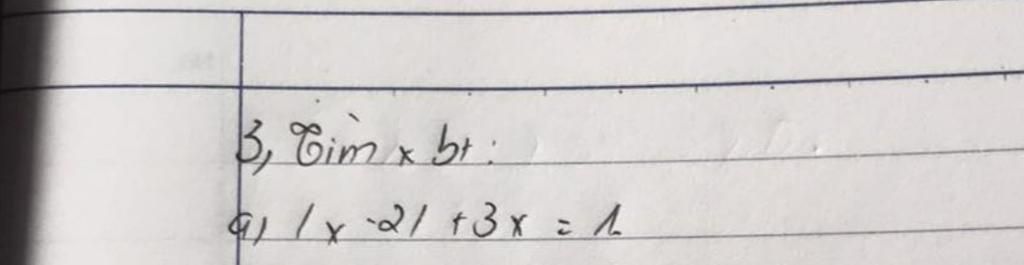 3, Tìm x bt:
a) |x - 2| + 3x = 1